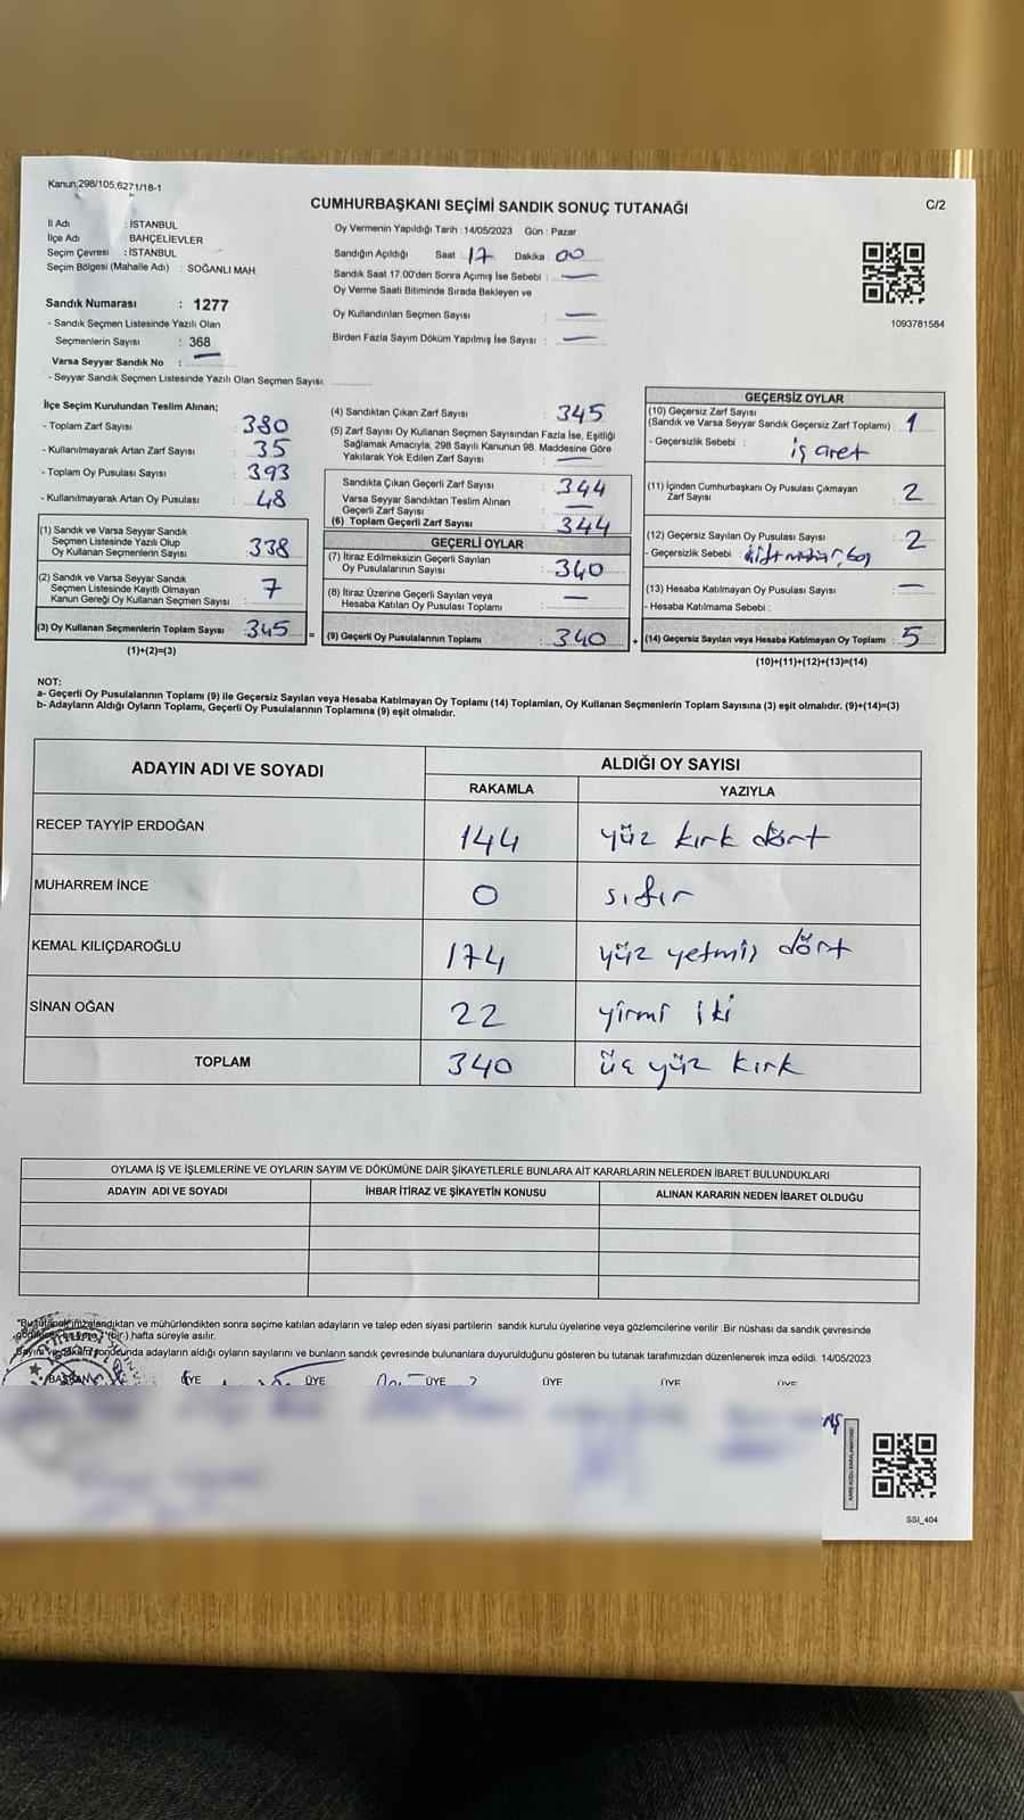 Kanun;298/105,6271/18-1
CUMHURBAŞKANI SEÇİMİ SANDIK SONUÇ TUTANAĞI
C/2
İl Adı : İSTANBUL
İlçe Adı BAHÇELİEVLER
Seçim Çevresi : İSTANBUL
Seçim Bölgesi (Mahalle Adı) : SOĞANLI MAH.
Sandık Numarası : 1277
- Sandık Seçmen Listesinde Yazılı Olan
Seçmenlerin Sayısı : 368
Varsa Seyyar Sandık No : —
- Seyyar Sandık Seçmen Listesinde Yazılı Olan Seçmen Sayısı:
Oy Vermenin Yapıldığı Tarih :14/05/2023 Gün : Pazar
Sandığın Açıldığı Saat 17 Dakika 00
Sandık Saat 17.00'den Sonra Açımış İse Sebebi : —
Oy Verme Saati Bitiminde Sırada Bekleyen ve
Oy Kullandırılan Seçmen Sayısı : —
Birden Fazla Sayım Döküm Yapılmış İse Sayısı : —
1093781584
İlçe Seçim Kurulundan Teslim Alınan;
- Toplam Zarf Sayısı : 380
- Kullanılmayarak Artan Zarf Sayısı : 35
- Toplam Oy Pusulası Sayısı : 393
- Kullanılmayarak Artan Oy Pusulası : 48
(1) Sandık ve Varsa Seyyar Sandık
Seçmen Listesinde Yazılı Olup
Oy Kullanan Seçmenlerin Sayısı : 338
(2) Sandık ve Varsa Seyyar Sandık
Seçmen Listesinde Kayıtlı Olmayan
Kanun Gereği Oy Kullanan Seçmen Sayısı : 7
(3) Oy Kullanan Seçmenlerin Toplam Sayısı : 345
(1)+(2)=(3)
(4) Sandıktan Çıkan Zarf Sayısı : 345
(5) Zarf Sayısı Oy Kullanan Seçmen Sayısından Fazla İse, Eşitliği
Sağlamak Amacıyla, 298 Sayılı Kanunun 98. Maddesine Göre
Yakılarak Yok Edilen Zarf Sayısı : —
Sandıkta Çıkan Geçerli Zarf Sayısı : 344
Varsa Seyyar Sandıktan Teslim Alınan
Geçerli Zarf Sayısı : —
(6) Toplam Geçerli Zarf Sayısı : 344
GEÇERLİ OYLAR
(7) İtiraz Edilmeksizin Geçerli Sayılan
Oy Pusulalarının Sayısı : 340
(8) İtiraz Üzerine Geçerli Sayılan veya
Hesaba Katılan Oy Pusulası Toplamı : —
= (9) Geçerli Oy Pusulalarının Toplamı : 340
GEÇERSİZ OYLAR
(10) Geçersiz Zarf Sayısı
(Sandık ve Varsa Seyyar Sandık Geçersiz Zarf Toplamı) : 1
- Geçersizlik Sebebi : işaret
(11) İçinden Cumhurbaşkanı Oy Pusulası Çıkmayan
Zarf Sayısı : 2
(12) Geçersiz Sayılan Oy Pusulası Sayısı : 2
- Geçersizlik Sebebi : çift mühür, boş
(13) Hesaba Katılmayan Oy Pusulası Sayısı : —
- Hesaba Katılmama Sebebi :
+ (14) Geçersiz Sayılan veya Hesaba Katılmayan Oy Toplamı : 5
(10)+(11)+(12)+(13)=(14)
NOT:
a- Geçerli Oy Pusulalarının Toplamı (9) ile Geçersiz Sayılan veya Hesaba Katılmayan Oy Toplamı (14) Toplamları, Oy Kullanan Seçmenlerin Toplam Sayısına (3) eşit olmalıdır. (9)+(14)=(3)
b- Adayların Aldığı Oyların Toplamı, Geçerli Oy Pusulalarının Toplamına (9) eşit olmalıdır.
ADAYIN ADI VE SOYADI
ALDIĞI OY SAYISI
RAKAMLA YAZIYLA
RECEP TAYYİP ERDOĞAN 144 yüz kırk dört
MUHARREM İNCE 0 sıfır
KEMAL KILIÇDAROĞLU 174 yüz yetmiş dört
SİNAN OĞAN 22 yirmi iki
TOPLAM 340 üç yüz kırk
OYLAMA İŞ VE İŞLEMLERİNE VE OYLARIN SAYIM VE DÖKÜMÜNE DAİR ŞİKAYETLERLE BUNLARA AİT KARARLARIN NELERDEN İBARET BULUNDUKLARI
ADAYIN ADI VE SOYADI İHBAR İTİRAZ VE ŞİKAYETİN KONUSU ALINAN KARARIN NEDEN İBARET OLDUĞU
"Bu tutanak imzalandıktan ve mühürlendikten sonra seçime katılan adayların ve talep eden siyasi partilerin sandık kurulu üyelerine veya gözlemcilerine verilir .Bir nüshası da sandık çevresinde
(bir) hafta süreyle asılır.
Sayım ve döküm sonunda adayların aldığı oyların sayılarını ve bunların sandık çevresinde bulunanlara duyurulduğunu gösteren bu tutanak tarafımızdan düzenlenerek imza edildi. 14/05/2023
BAŞKAN ÜYE ÜYE ÜYE ÜYE ÜYE ÜYE
SSI_404